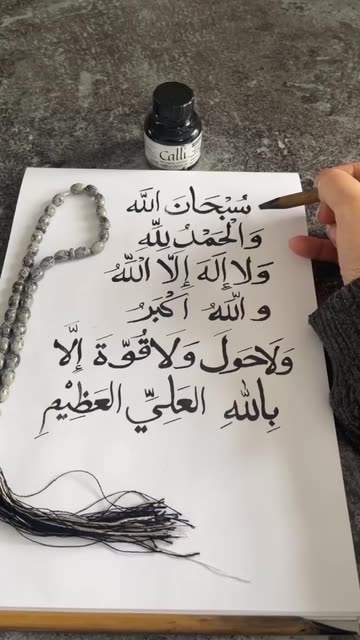 Calli
سُبْحَانَ اللَّه
وَالْحَمْدُ لِلَّهِ
وَلَا إِلَهَ إِلَّا اللَّهُ
وَاللَّهُ أَكْبَرُ
وَلَا حَوْلَ وَلَا قُوَّةَ إِلَّا
بِاللَّهِ الْعَلِيِّ الْعَظِيمِ